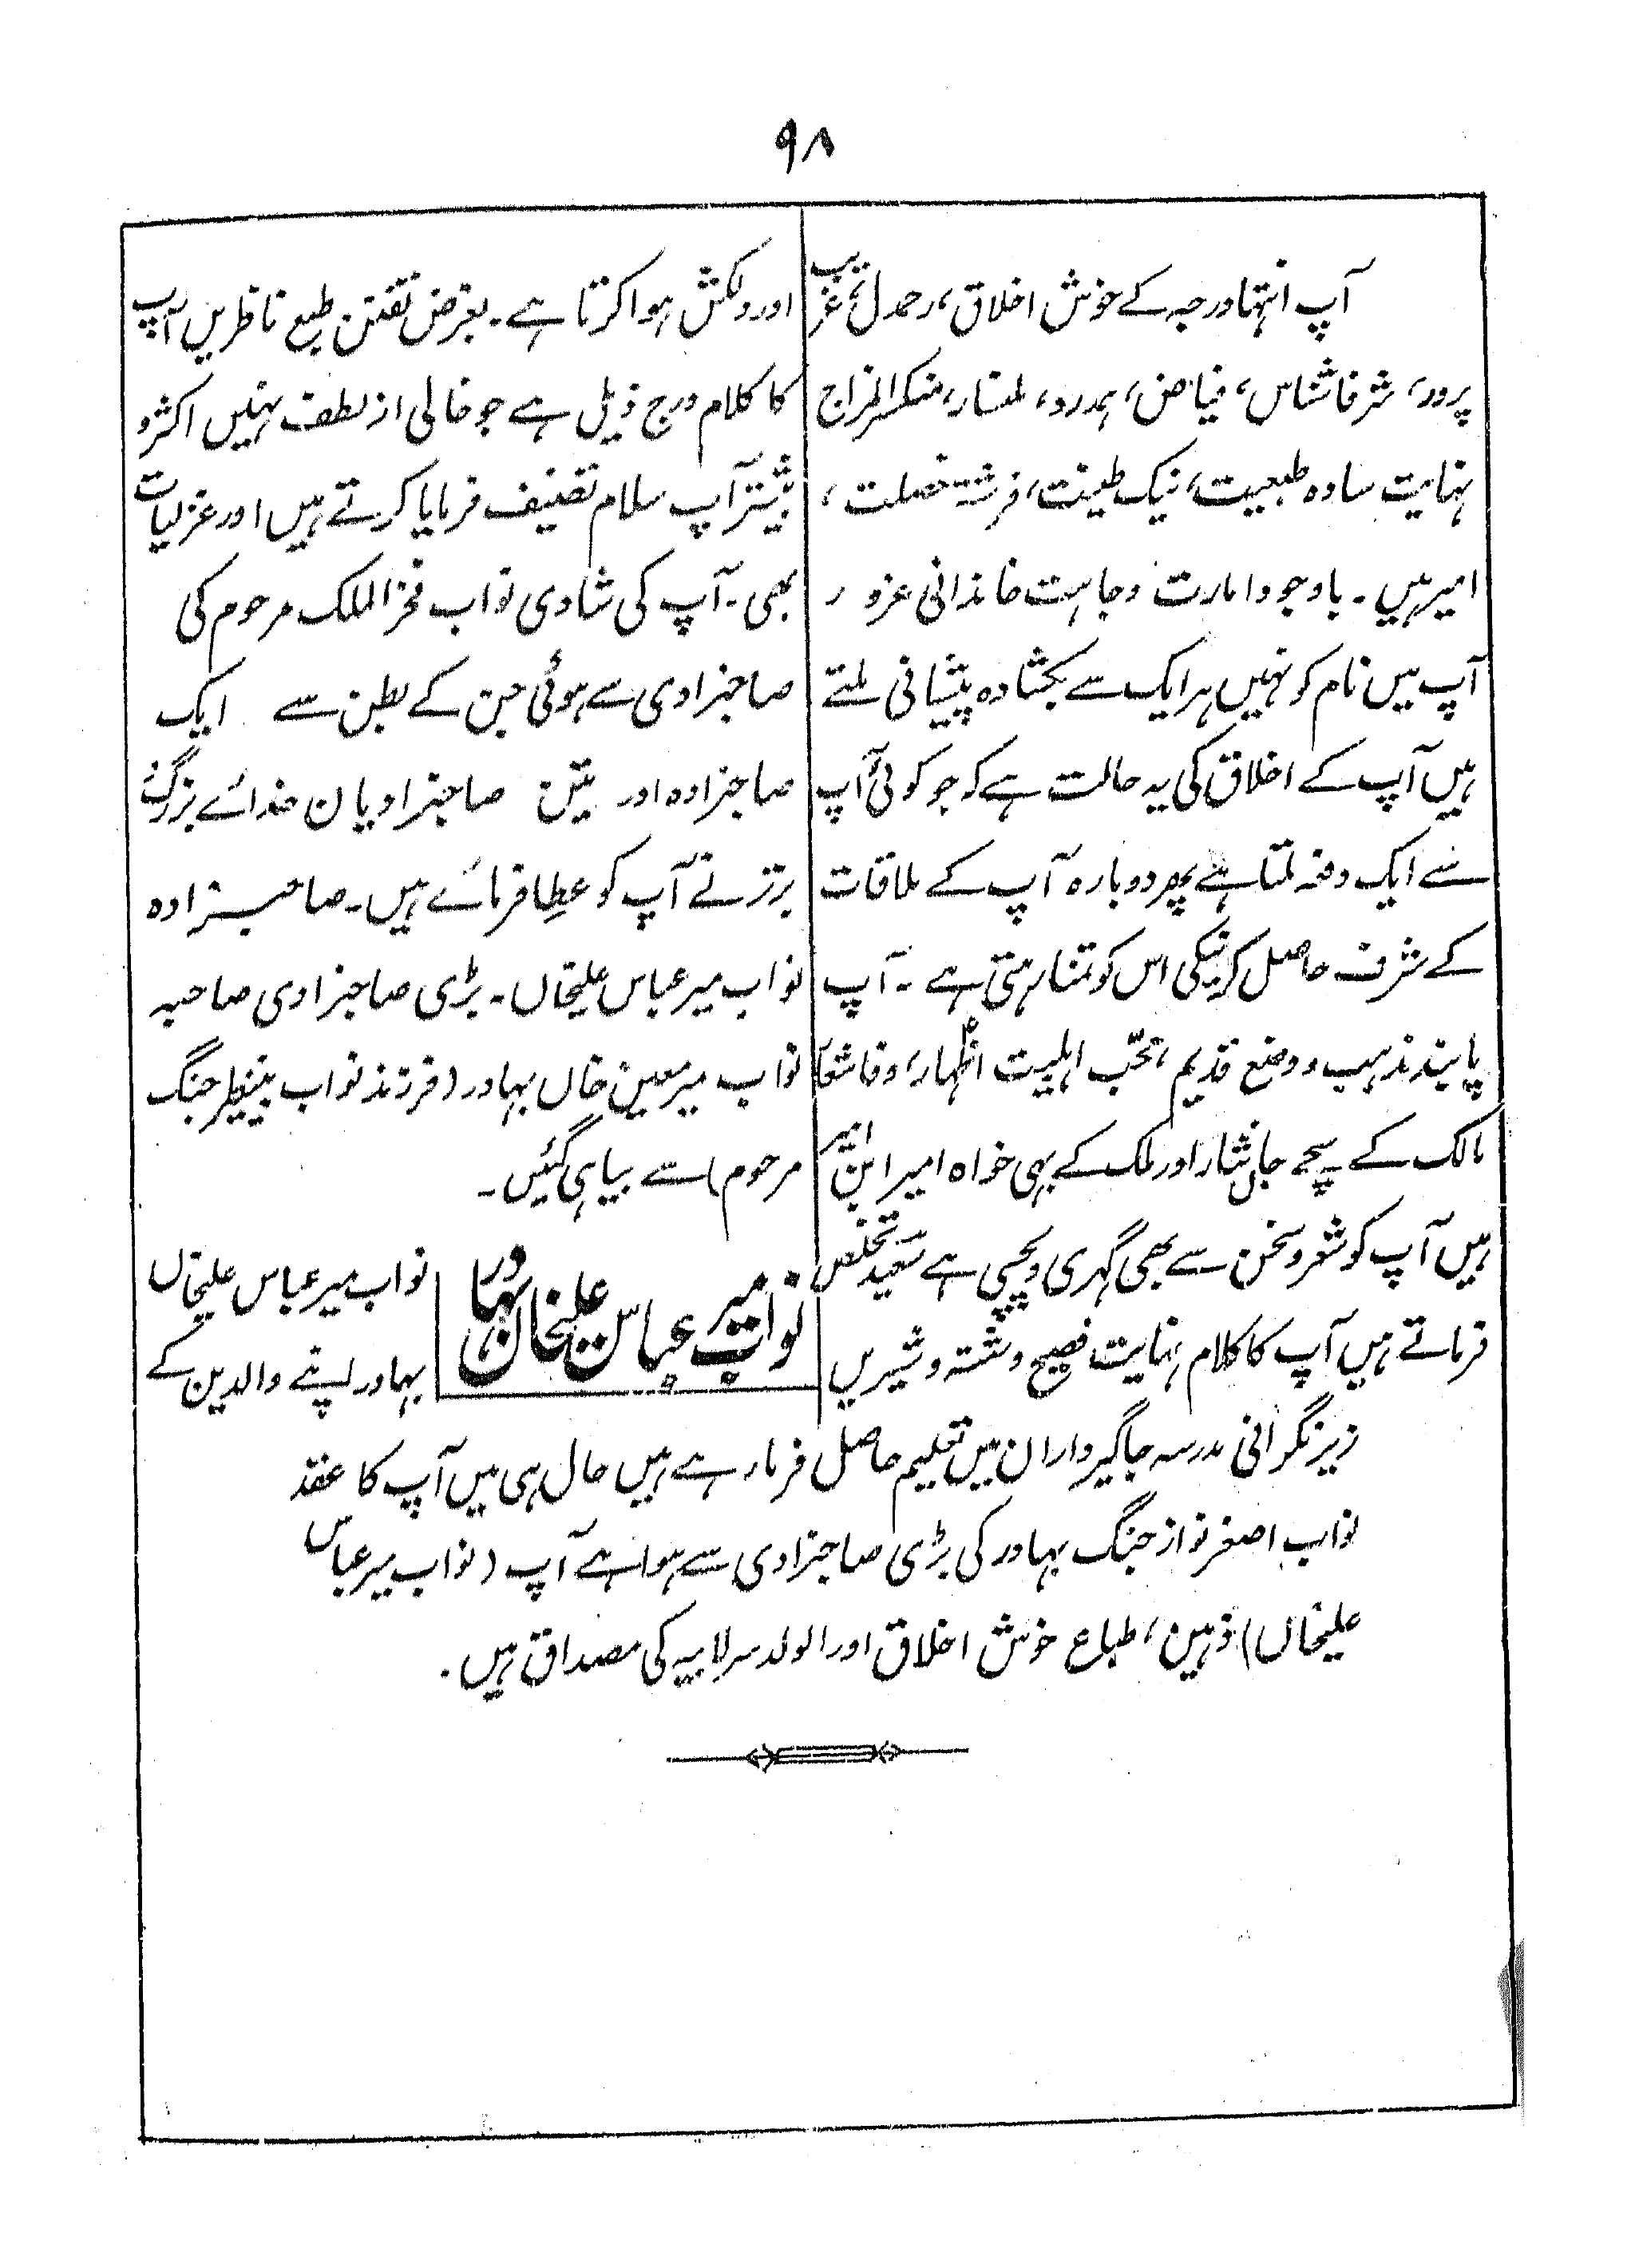 ۹۸
آپ انتہا درجہ کے خوش اخلاق، رحمدل، غریب
پرور، شرفا شناس، فیاض، ہمدرد، ملنسار، منکسر المزاج
نہایت سادہ طبعیت، نیک طینت، فرشتہ خصلت،
امیر ہیں۔ باوجود امارت وجاہت خاندانی غرور
آپ میں نام کو نہیں ہر ایک سے بکشادہ پیشانی ملتے
ہیں آپ کے اخلاق کی یہ حالت ہے کہ جو کوئی آپ
سے ایک دفعہ ملتا ہے پھر دوبارہ آپ کے ملاقات
کے شرف حاصل کرنیکی اس کو تمنا رہتی ہے۔ آپ
پابند مذہب و وضع قدیم، محّب اہلبیت اطہار، وفا شعار
مالک کے سچے جاں نثار اور ملک کے بہی خواہ امیر ابن امیر
ہیں آپ کو شعر و سخن سے بھی گہری دلچسپی ہے سعید تخلص
فرماتے ہیں آپ کا کلام نہایت فصیح و شستہ و شیریں
اور دلکش ہوا کرتا ہے۔ بغرض تفنن طبع ناظرین آپ
کا کلام درج ذیل ہے جو خالی از لطف نہیں اکثر و
بیشتر آپ سلام تصنیف فرمایا کرتے ہیں اور غزلیات
بھی۔ آپ کی شادی نواب فخر الملک مرحوم کی
صاحبزادی سے ہوئی جن کے بطن سے ایک
صاحبزادہ اور تین صاحبزادیان خدائے بزرگ و
برتر نے آپ کو عطا فرمائے ہیں۔ صاحبزادہ
نواب میر عباس علیخاں۔ بڑی صاحبزادی صاحبہ
نواب میر معین خاں بہادر (فرزند نواب بینظیر جنگ
مرحوم) سے بیاہی گئیں۔
نواب میر عباس علیخان بہادر
نواب میر عباس علیخاں
بہادر اپنے والدین کے
زیر نگرانی مدرسہ جاگیرداران میں تعلیم حاصل فرما رہے ہیں حال ہی میں آپ کا عقد
نواب اصغر نواز جنگ بہادر کی بڑی صاحبزادی سے ہوا ہے آپ (نواب میر عباس
علیخاں) ذہین، طباع خوش اخلاق اور الولد سر لابیہ کی مصداق ہیں۔